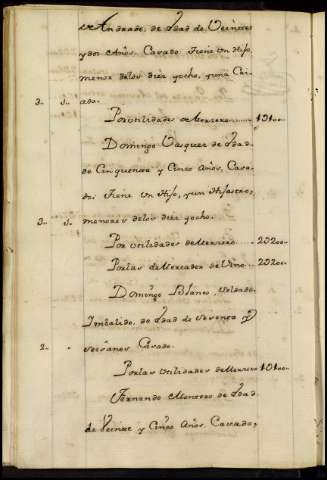 Andrade, de Edad de Veinte
y dos Años, Casado. Tiene Un Hijo,
menor delos diez yocho, yuna Cri-
3.. 1.. ada.
Por Utilidades de Herrero........ 101..00..
Domingo Vasquez de Edad
de Cinquenta y Cinco Años, Casa-
do: Tiene Un Hijo, yun Hijastro,
3.. 1.. menores delos diez yocho.
Por Utilidades de Herrero.... 202..00..
Porlas de Mercader de Vino... 202..00..
Domingo Blanco, Soldado
Imbalido, de Edad de Sesenta y
2.. seis años Casado.
Porlas Utilidades de Herrero 101..00..
Fernando Montero de Edad
de Veinte y Cinco Años, Casado,